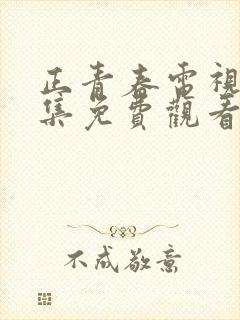 正青春電視
集免費觀看
不成敬意